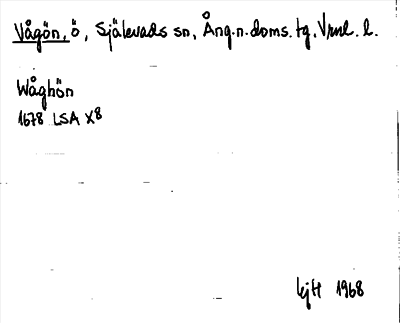 Vågön, ö, Själevads sn, Ång.n.doms.tg. Vrnl. l.
Wåghön
1678 LSA X8
1968